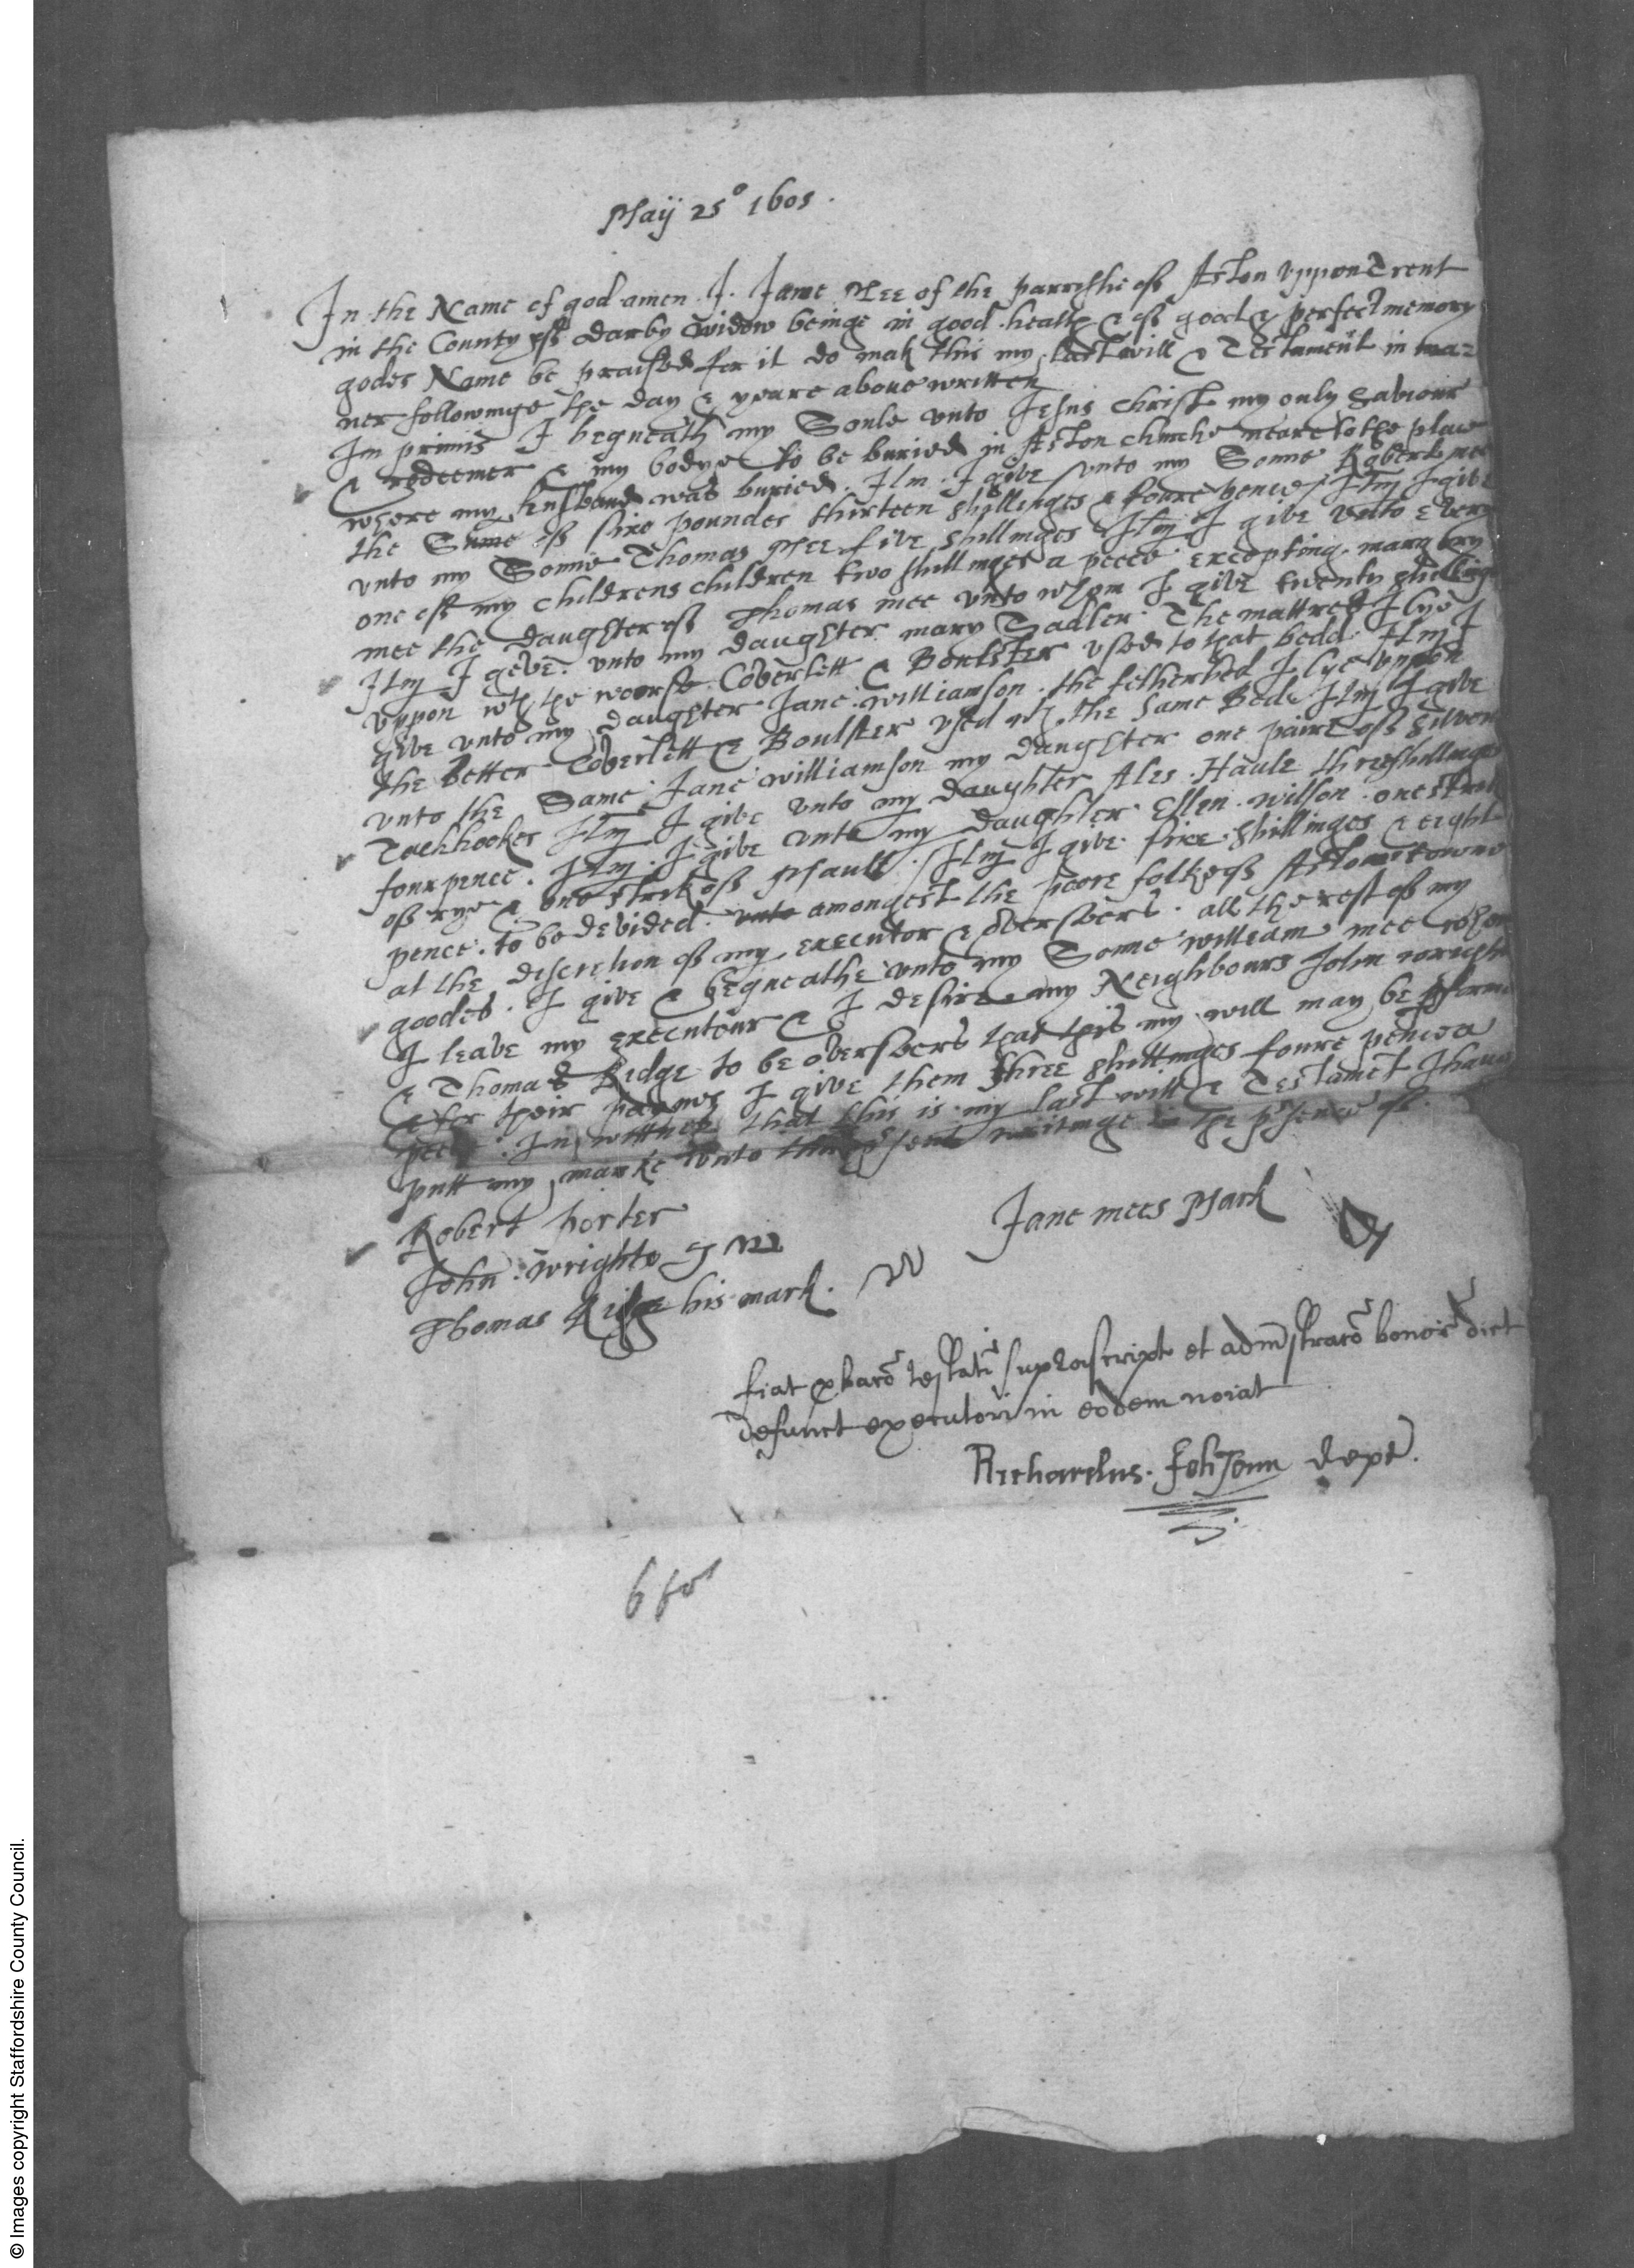 Maij 25° 1605.
In the Name of god amen. I. Jane Mee of the parrishe off Aston uppon Trent
in the County off darby widow beinge in good health & off good & perfect memory
godes Name be praised for it do mak this my last will & Testament in ma=
ner followinge the day & yeare above written
Im primis I beqneath my Soule unto Jesus christ my only Saviour
& redeemer & my bodye to be buried in Aston churche neare to the place
where my husband was buried. Itm. I give unto my Sonne Robert mee
the Sume off sixe poundes thirteen shillinges & foure pence Itm I give
unto my Sonne Thomas Mee five shillinges Itm I give unto every
one off my childrens children two shillinges a peece excepting mary
mee the daughter off Thomas mee unto whom I give twenty shillings
Itm I geve unto my daughter mary Sadler. The mattres I lye
uppon wth the woorse Coverlett & Boulster used to that bedd. Itm I
give unto my daughter Jane williamson. the fetherbed I lye uppon
the Better Coverlett & Boulster used wth the same Bede Itm I give
unto the Same Jane williamson my daughter one paire off silver
Tachhookes Itm I give unto my daughter Ales. Haule three shillinges
four pence. Itm. I give unto my daughter Ellen. willson. one strik
off rye & one strik off mault. Itm I give sixe shillinges & eight
pence. to be devided unto amongest the poore folkes off Aston towne
at the discretion off my executor & overseers. all the rest off my
goodes. I give & beqneathe unto my Sonne william mee whom
I leave my executour & I desire my Neighbours John wright
& Thomas Ridge to be overseers that this my will may be pformed
& for their paynes I give them three shillinges foure pence a
peece. In wittnes that this is my last will & Testamet I have
putt my marke unto this psent writinge in the psence off.
Robert porter
John wrighte
Thomas Ridge his mark. W
Jane mees Mark
fiat probaco testati suprascript et admstraco bonor dict
defunct executori in eodem noiat
Richardus. Johson dept.